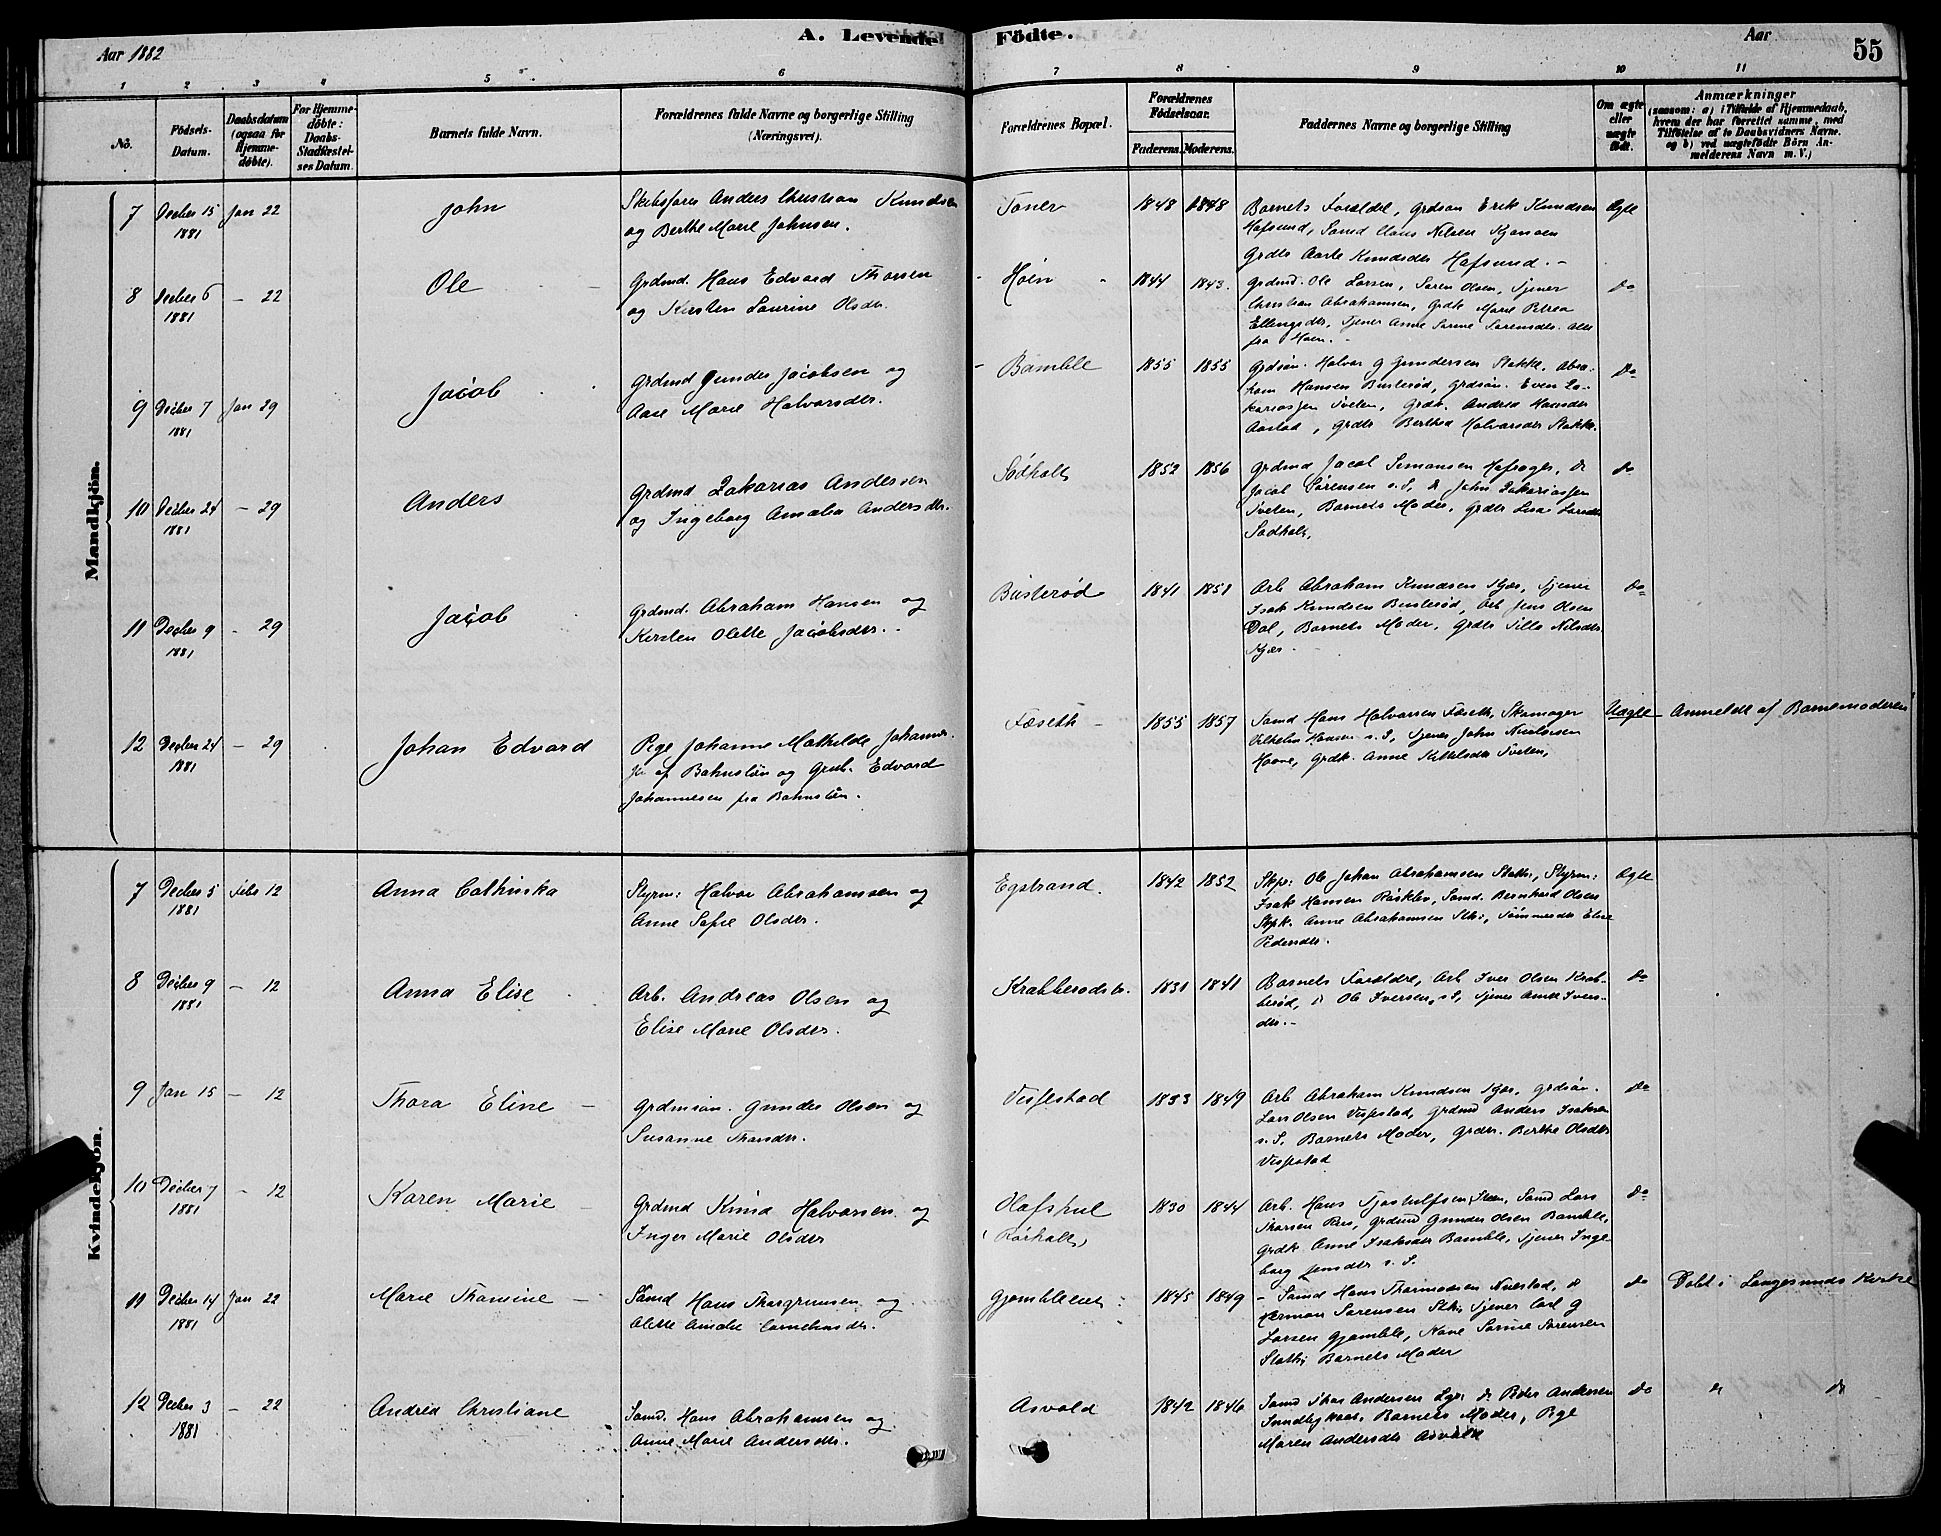 Aar 1882
A. Levende Födte.
Aar
55
1 2 3 4 5 6 7 8 9 10 11
No.
Födsels-Datum.
Daabsdatum (ogsaa for Hjemmedöbte).
For Hjemmedöbte: Daabs Stadfæstelses Datum.
Barnets fulde Navn.
Forældrenes fulde Navne og borgerlige Stilling (Næringsvei).
Forældrenes Bopæl.
Forældrenes Födselsaar.
Faderens. Moderens.
Faddernes Navne og borgerlige Stilling
Om ægte eller uægte födt.
Anmærkninger
(saasom: a) i Tilfælde af Hjemmedaab,
hvem der har forrettet samme, med
Tilföielse af to Daabsvidners Navne.
og b) ved uægtefödte Börn Anmelderens Navn m. V.)
Mandkjön.
7 Decber 15 1881 Jan 22
John
Skibsfører Anders Christian Knudsen
og Berthe Marie Johnsen.
Toner
1848 1848
Barnets Forældre, Grdsøn Erik Knudsen
Hafsund, Sømd Claus Nilsen
Grdtr Aasle Knudsdtr Hafsund. -
Ægte
8 Decber 6 1881 - 22
Ole
Grdmd. Hans Edvard Thorsen
og Kirsten Laurine Olsdtr.
Høen
1844 1843.
Grdmd. Ole Larsen, Søren Olsen, Tjener
Christian Abrahamsen, Grdk Marie Petrea
Ellingsdtr, Tjener Anne Sørine Sørensdtr. Alle
fra Høen. -
do
9 Decber 7 1881 Jan 29
Jacob
Grdmd Gunder Jacobsen og
Aase Marie Halvorsdtr.
Bamble
1855 1855
Grdsøn. Halvor G Gundersen Stokke, Abra-
ham Hansen Busterød, Grdsøn. Even Za-
kariassen Tveten, Grdk. Andrea Hansdtr
Aastad, Grdtr Berthea Halvorsdtr Stokke.
do
10 Decber 24 1881 - 29
Anders
Grdmd Zakarias Andersen
og Ingeborg Amalia Andersdtr.
Sødholt
1852 1856
Grdmd Jacob Simonsen Hafsager, do
Jacob Sørensen s. S, do John Zakariassen
Tveten, Barnets Moder, Grdtr Lisa Larsdtr
Sødholt,
do
11 Decber 9 1881 - 29
Jacob
Grdmd. Abraham Hansen og
Kirsten Olette Jacobsdtr. -
Busterød
1841 1851
Arb Abraham Knudsen Kjær, Tjener
Isak Knudsen Busterød, Arb Jens Olsen
Dal, Barnets Moder, Grdtr Silla Nilsdtr
Kjær -
do
12 Decber 24 1881 - 29
Johan Edvard
Pige Johanne Mathilde Johannes-
af Bohuslän og Grub. Edvard
Johannesen fra Bohuslän.
Fæseth -
1855 1857
Sømd Hans Halvorsen Fæseth, Skomager
Vilhelm Hansen s. S, Tjener John Nicolaisen
Haave, Grdk. Anne Kittelsdtr Tveten,
Uægte
Anmeldt af Barnemoderen
Kvindekjön.
7 Decber 5 1881 Febr 12
Anna Cathinka
Styrm: Halvor Abrahamsen og
Anne Sofie Olsdtr.
Egstrand.
1842 1852
Skpr: Ole Johan Abrahamsen Stathe, Styrm:
Isak Hansen Røsklev, Sømd. Bernhard Olsen
Skpk. Anne Abrahamsen Stki, Tømmerdtr Elise
Pedersdtr.
Ægte
8 Decber 9 1881 - 12
Anna Elise
Arb. Andreas Olsen og
Elise Marie Olsdtr.
Krabberødstr.
1831 1841
Barnets Forældre, Arb Iver Olsen Krab-
berød, do Ole Iversen s S, Tjener Anne Ivers-
dtr. -
do
9 Jan 15 - 12
Thora Eline -
Grdmsøn. Gunder Olsen og
Susanne Thorsdtr.
Vissestad
1833 1849
Arb Abraham Knudsen Kjær, Grdsøn.
Lars Olsen Vissestad, Grdmd Anders Isaksen
s. S. Barnets Moder, Grdtr. Berthe Olsdtr
Vissestad
do
10 Decber 7 1881 - 12
Karen Marie
Grdmd Knud Halvorsen og
Inger Marie Olsdtr
Olafshul
(Rørholt)
1830 1844
Arb. Hans Tjostulfsen Steen, Sømd Lars
Thorsen Riis, Grdmd Gunder Olsen Bamble,
Grdk Anne Isaksdtr Bamble, Tjener Inge-
borg Jensdtr s. S.
do
11 Decber 14 1881 Jan 22
Marie Thomine -
Sømd Hans Thorgrimsen og
Olette Amalie Corneliusdtr.
1845 1849
- Sømd Hans Thormodsen Nustad, do
Herman Sørensen Stki Tjener Carl G
Larsen Gjømble, Kone Sørine Sørensen
Stathe Barnets Moder
do
Døbt i Langesunds Kirke
12 Decber 3 1881 - 22
Andrea Christiane
Sømd. Hans Abrahamsen og
Anne Marie Andersdtr.
Asvold
1842 1846
Sømd Thor Andersen do Peder Andersen
Sundbykaas, Barnets Moder, Pige
Maren Andersdtr Asvold
do
do do